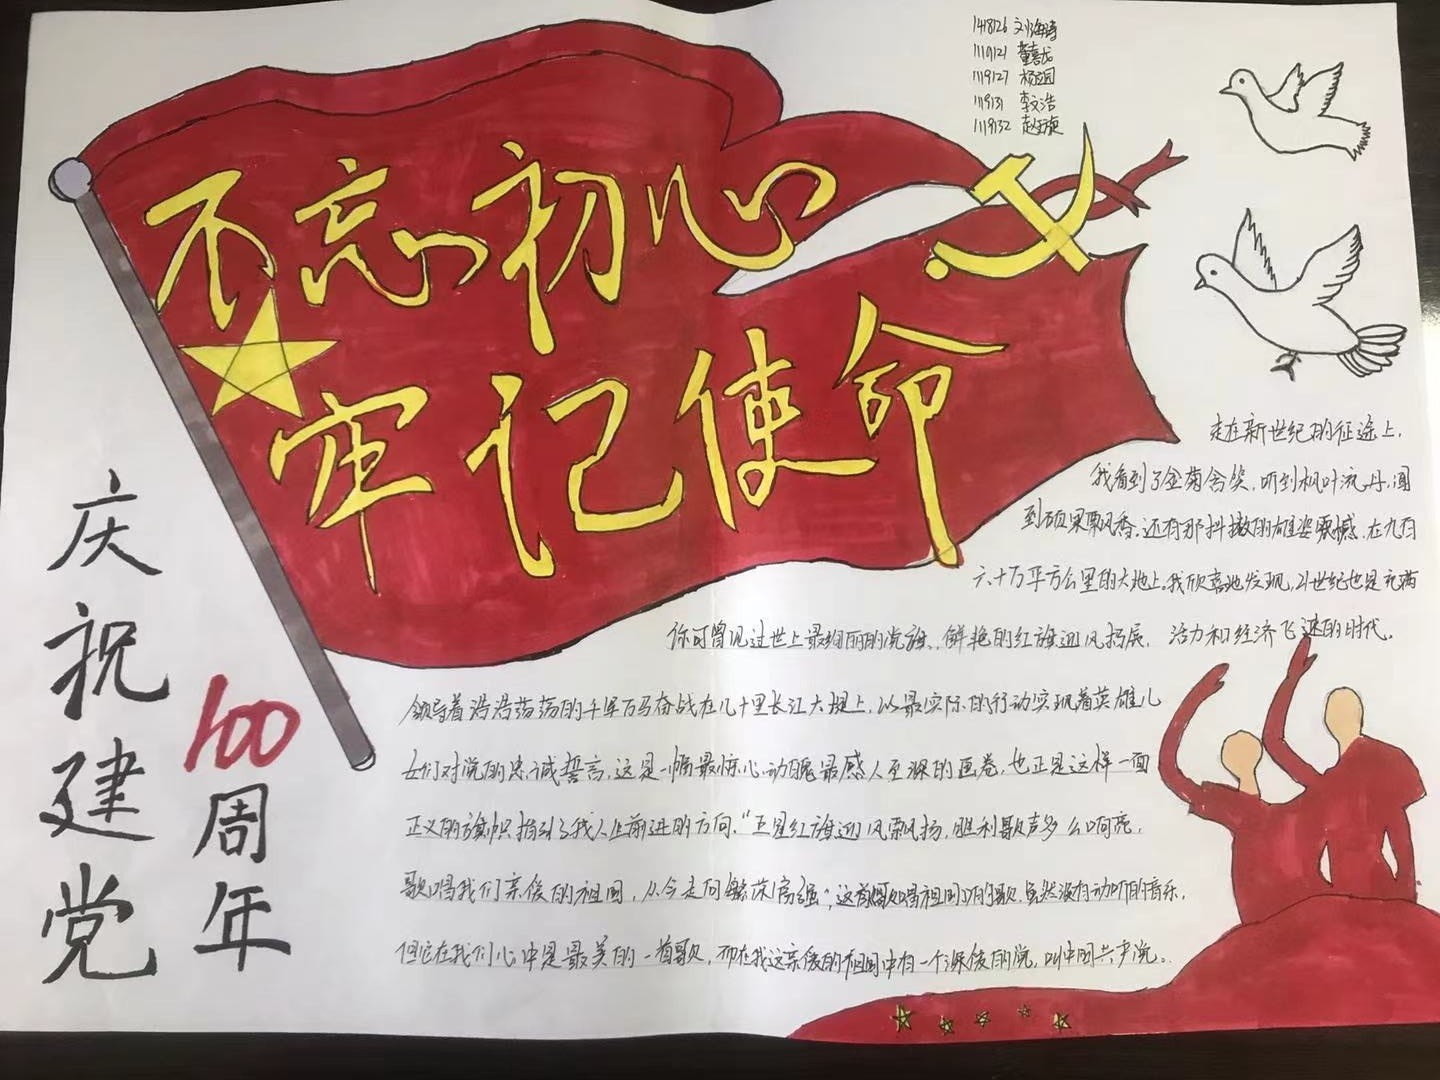 1418126 刘海涛
1119121 董喜龙
1119127
1119131 李文浩
1119132
不忘初心
牢记使命
庆祝建党
100周年
走在新世纪的征途上，
我看到了金菊含笑，听到枫叶流丹，闻
到硕果飘香。还有那抖擞的雄姿震撼，在九百
六十万平方公里的大地上。我欣喜地发现，21世纪也是充满
活力和经济飞速的时代。
你可曾见过世上最绚丽的党旗，鲜艳的红旗迎风招展，
领导着浩浩荡荡的千军万马奋战在几十里长江大堤上，以最实际的行动实现着英雄儿
女们对党的忠诚誓言，这是一幅最惊心动魄最感人至深的画卷，也正是这样一面
正义的旗帜指引了我人生前进的方向，“五星红旗迎风飘扬，胜利歌声多么响亮，
歌唱我们亲爱的祖国，从今走向繁荣富强”，这首歌唱祖国的歌，虽然没有动听的音乐，
但它在我们心中是最美的一首歌，而在我这亲爱的祖国中有一个深爱的党，叫中国共产党。